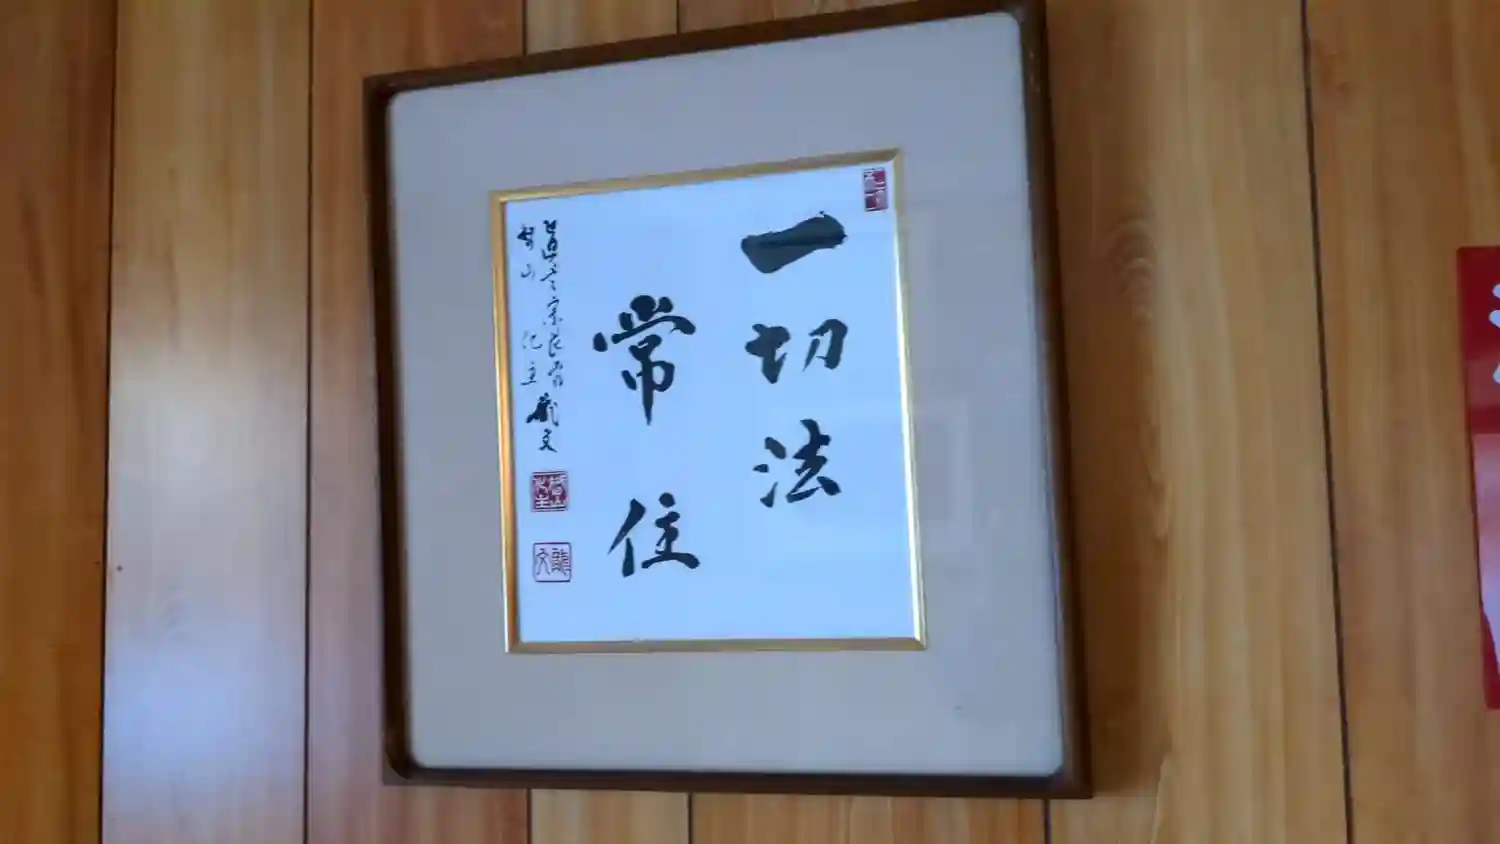 一切法
常住
智山化主龍文